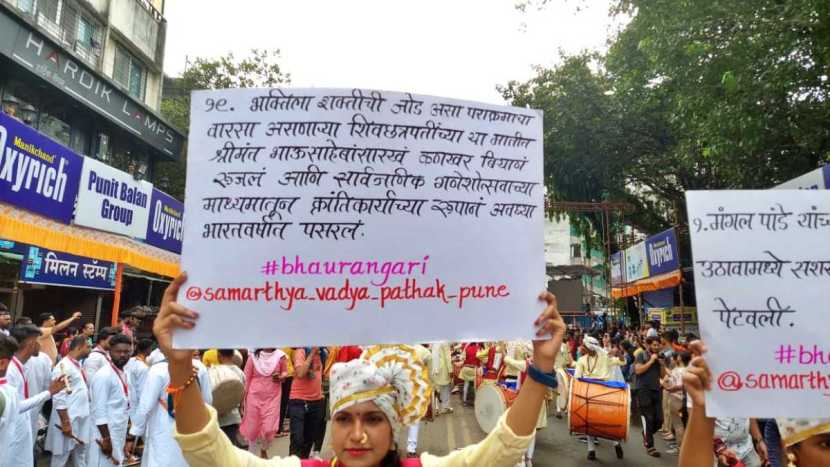 HARDIK LAMPS
Manikchand
Oxyrich
Punit Balan
Group
Oxyric
मिलन स्टॅम्प
१९. भक्तिला शक्तीची जोड असा पराक्रमाचा
वारसा असणाऱ्या शिवछत्रपतींच्या या मातीत
श्रीमंत भाऊसाहेबांसारखं कणखर बियाणं
रुजलं आणि सार्वजनिक गणेशोत्सवाच्या
माध्यमातून क्रांतिकार्याच्या रूपानं अवघ्या
भारतवर्षात पसरलं.
#bhaurangari
@samarthya_vadya_pathak_pune
Oxyrich
१. मंगल पांडे यांच
उठावामध्ये सशस
पेटवली.
#bha
@samarthy